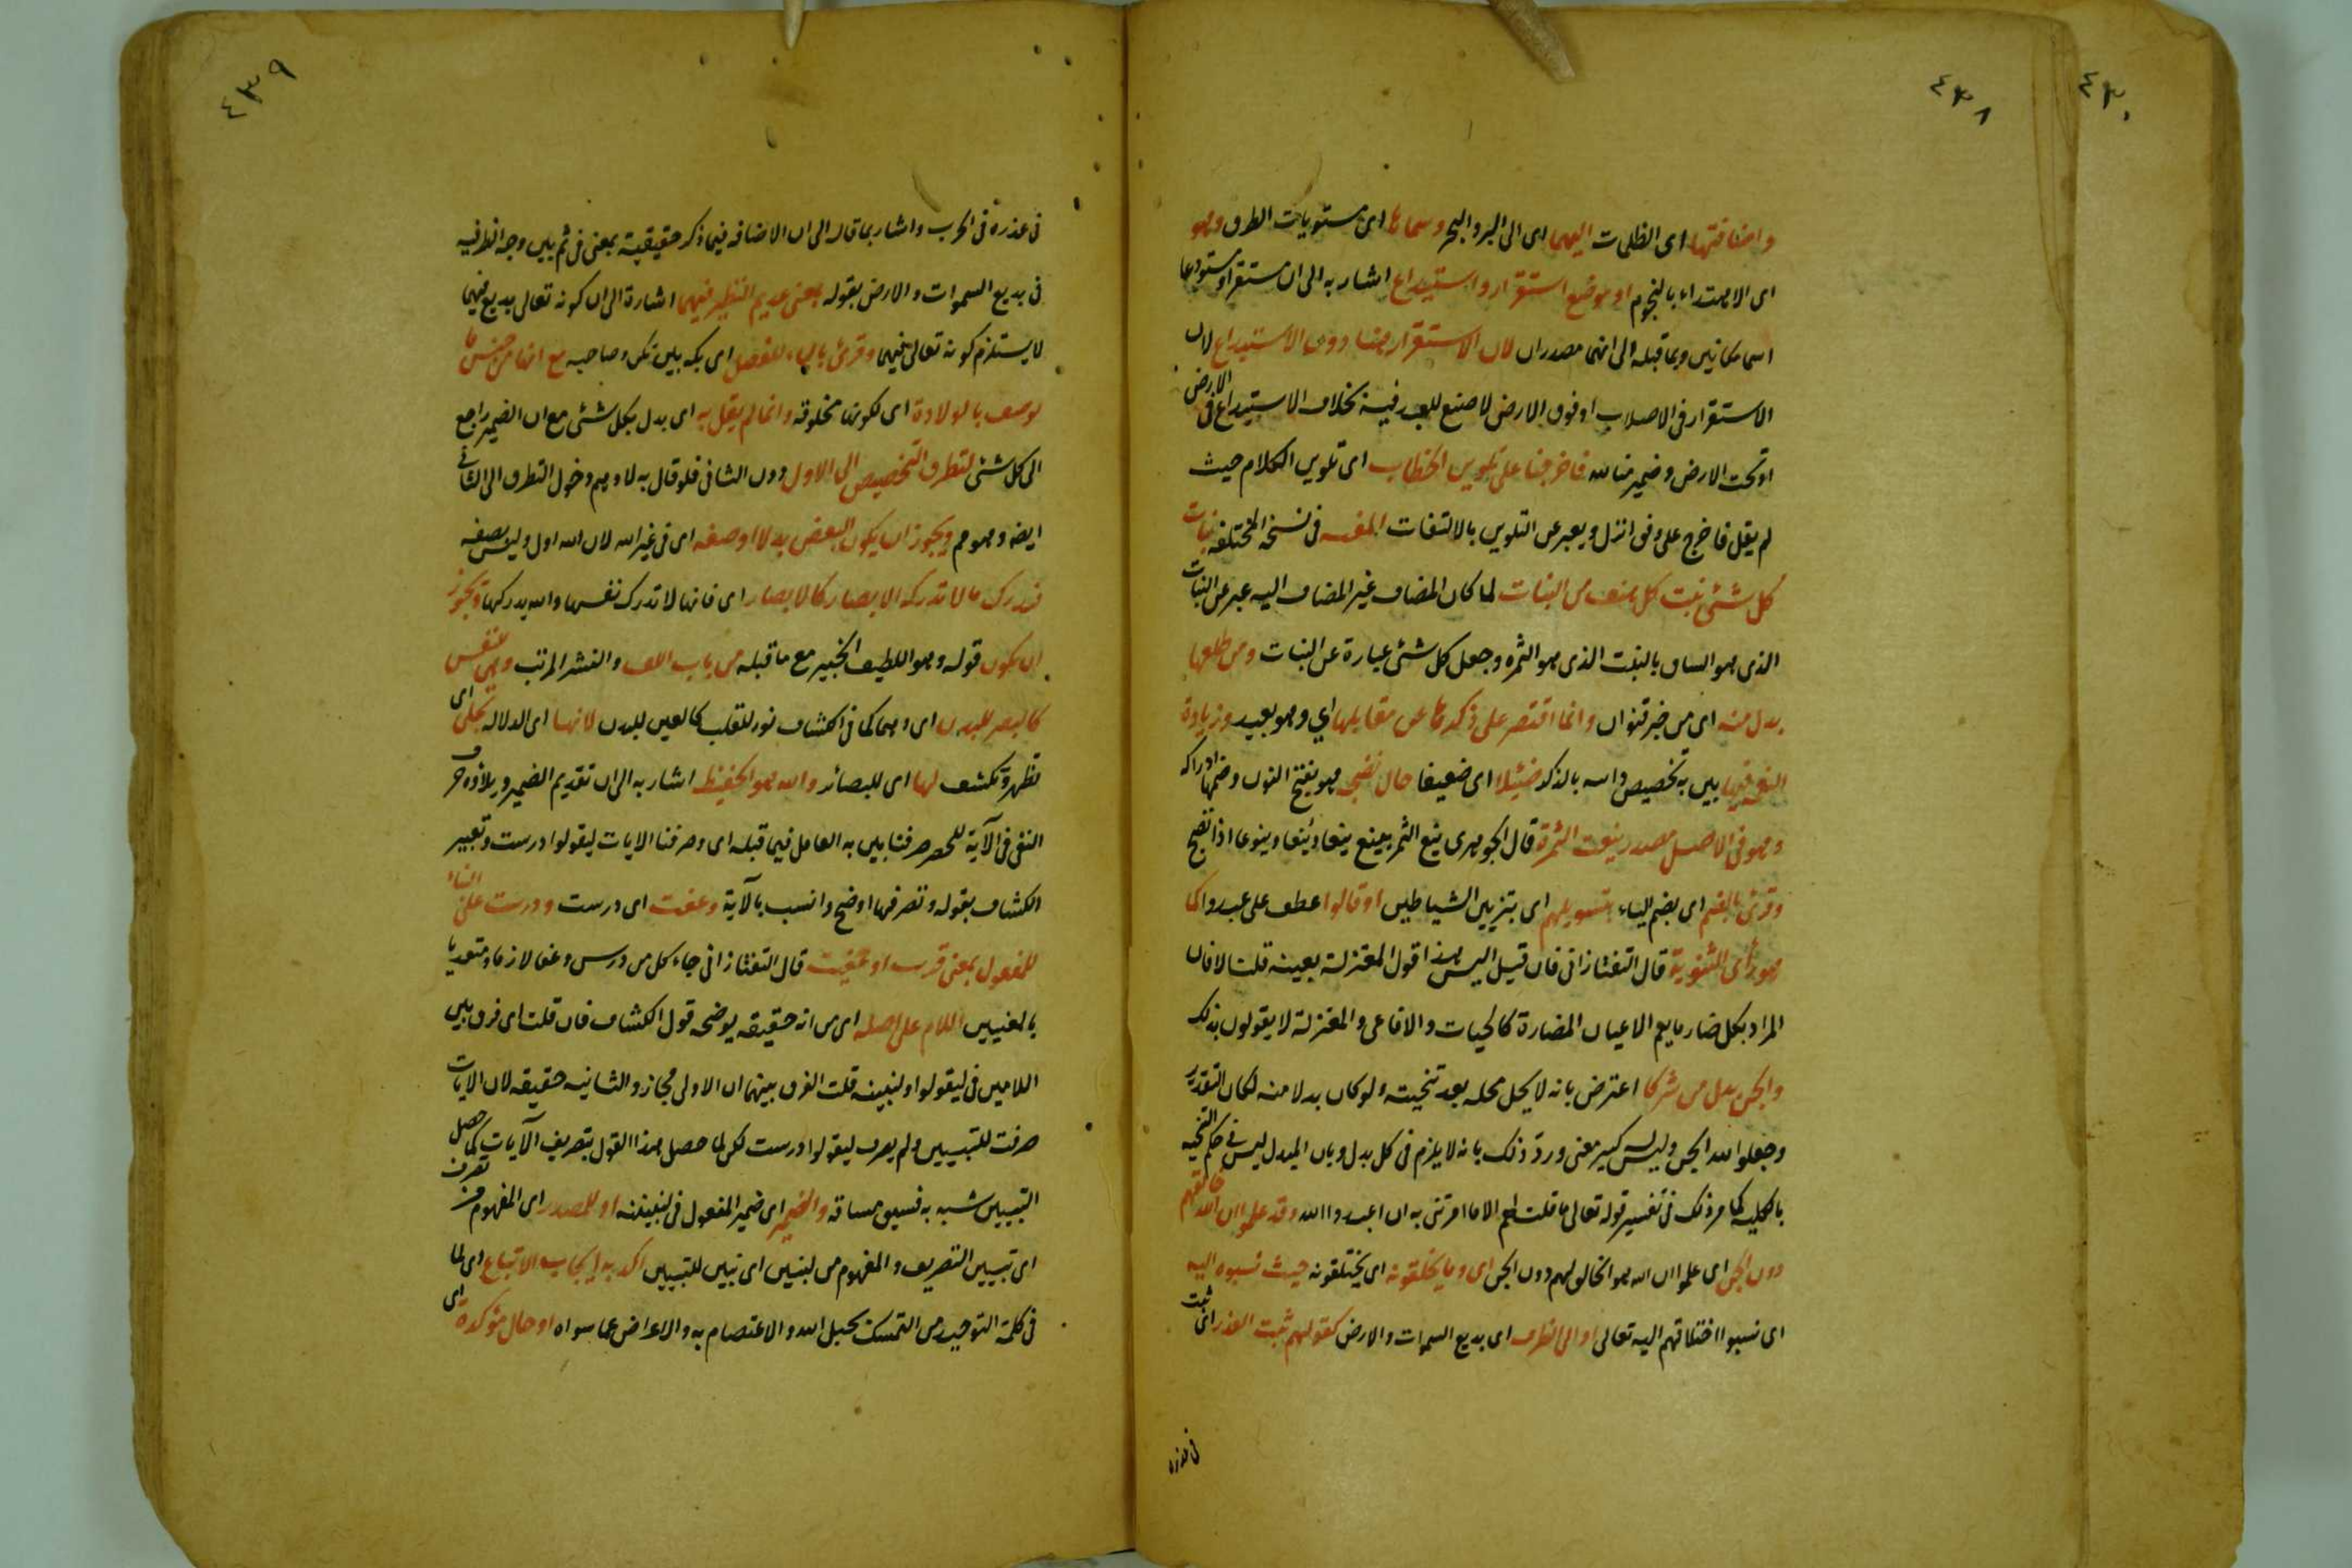 ٤٣٨
واضافتها اى الظلمات اليهما اى الى البر والبحر وسماها اى مستويات الطرق وهو
اى الاهتداء بالنجوم او موضع استقرار واستيداع اشار به الى ان مستقرا ومستودعا
اسما مكانين وبما قبله الى انهما مصدران لان الاستقرار منا دون الاستيداع لان
الاستقرار فى الاصلاب او فوق الارض لا صنع للعبد فيه بخلاف الاستيداع فى الارض
او تحت الارض وضمير منا لله فاخرجنا على تلوين الخطاب اى تلوين الكلام حيث
لم يقل فاخرج على وفق انزل ويعبر عن التلوين بالالتفات فى نسخه المختلفة نبات
كل شئ نبت كل صنف من النبات لما كان المضاف غير المضاف اليه عبر عن النبات
الذى هو الساق بالنبت الذى هو الثمره وجعل كل شئ عبارة عن النبات ومن طلعها
بدل منه اى من خبر قنوان وانما اقتصر على ذكرها عن مقابلها اي وهو بعيد وزيادة
النعمة فيها بين به تخصيص دانيه بالذكر ضئيلا اى ضعيفا حال نضجه هو بفتح النون وضمها ادراكه
وهو فى الاصل مصدر ينعت الثمرة قال الجوهرى ينع الثمر يينع ينعا وينعا وينوعا اذا نضج
وقرئ بالضم اى بضم الياء بتسويلهم اى بتزيين الشياطين او قالوا عطف على عبدوا كما
هو رأى الثنوية قال التفتازانى فان قيل اليس هذا قول المعتزلة بعينه قلت لا فان
المراد بكل ضار ما يعم الاعيان المضارة كالحيات والافاعى والمعتزلة لا يقولون بذلك
والجن بدل من شركا اعترض بانه لا يحل محله بعد تنحيته ولو كان بدلا منه لكان التقدير
وجعلوا لله الجن وليس كبير معنى ورد ذلك بانه لا يلزم فى كل بدل وبان المبدل ليس فى حكم التنحيه
بالكلية كما مر ذلك فى تفسير قوله تعالى ما قلت لهم الا ما امرتنى به ان اعبدوا الله وقد علموا ان الله خالقهم
دون الجن اى علموا ان الله هو الخالق لهم دون الجن اى وما يخلقونه اى يختلقونه حيث نسبوه اليه
اى نسبوا اختلاقهم اليه تعالى او الى الظرف اى بديع السموات والارض كقولهم ثبت الغدر اى ثبت
فى غدره
٤٣٩
فى غدره فى الحرب واشار بما قاله الى ان الاضافه فيما ذكر حقيقية بمعنى فى ثم بين وجه الظرفيه
فى بديع السموات والارض بقوله بمعنى عديم النظير فيهما اشارة الى ان كونه تعالى بديع فيهما
لا يستلزم كونه تعالى فيهما وقرئ بالياء للفصل اى بكه بين تكن وصاحبه مع انها من جنس ما
يوصف بالولادة اى لكونها مخلوقة وانما لم يقل به اى بدل بكل شئ مع ان الضمير راجع
الى كل شئ لتطرق التخصيص الى الاول دون الثانى فلو قال به لاوهم دخول التطرق الى الثانى
ايضه وهو هم ويجوز ان يكون البعض بدلا او صفه اى فى غير الله لان الله اول وليس بصفه
فيدرك ما لا تدركه الابصار كالابصار اى فانها لا تدرك نفسها والله يدركها ويجوز
ان يكون قوله وهو اللطيف الخبير مع ما قبله من باب اللف والنشر المرتب وهى للنفس
كالبصر للبدن اى وهى كما فى الكشاف نور للقلب كالعين للبدن لانها اى الدلاله تجلى اى
تظهر وتكشف لها اى للبصائر والله هو الحفيظ اشار به الى ان تقديم الضمير وايلاءه حرف
النفى فى الآية للحصر صرفنا بين به العامل فيما قبله اى وصرفنا الايات ليقولوا درست وتعبير
الكشاف بقوله ونصرفها اوضح وانسب بالآية وعفت اى درست ودرست على البناء
للمفعول بمعنى قرئت او عفيت قال التفتازانى جاء كل من درس وعفا لازما ومتعديا
بالمعنيين اللام على اصله اى من انه حقيقه يوضحه قول الكشاف فان قلت اى فرق بين
اللامين فى ليقولوا ولنبينه قلت الفرق بينهما ان الاولى مجاز والثانيه حقيقه لان الايات
صرفت للتبيين ولم يصرف ليقولوا درست لكن لما حصل هذا القول بتصريف الآيات كما حصل
التبيين شبه به فسيق مساقه والضمير اى ضمير المفعول فى لنبيننه او للمصدر اى المفهوم من نصرف
اى تبيين التصريف والمفهوم من لنبين اى نبين للتبيين اكد به ايجاب الاتباع اى لما
فى كلمة التوحيد من التمسك بحبل الله والاعتصام به والاعراض عما سواه او حال مؤكدة اى
٤٣٠